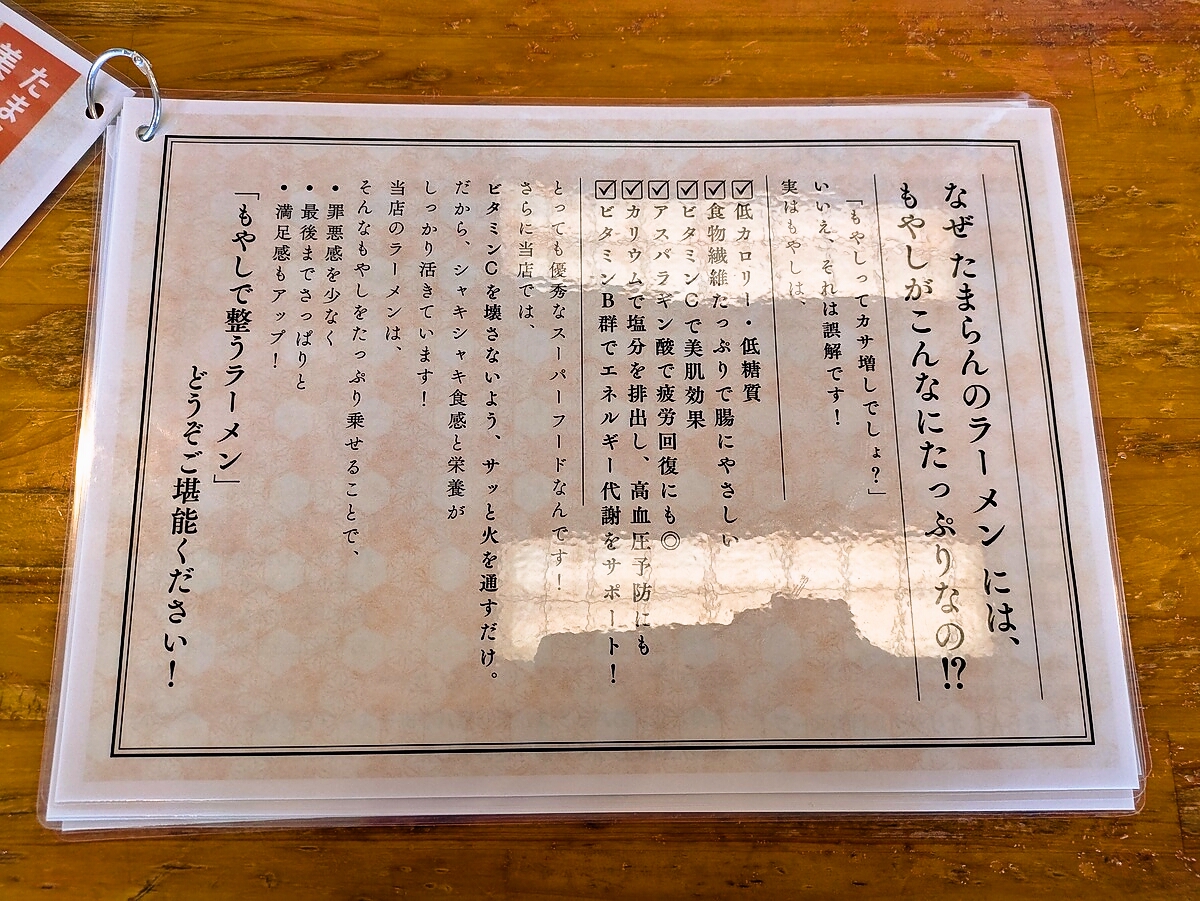 なぜ たまらんのラーメン には、
もやしがこんなにたっぷりなの!?
「もやしってカサ増しでしょ？」
いいえ、それは誤解です！
実はもやしは、
☑低カロリー・低糖質
☑食物繊維たっぷりで腸にやさしい
☑ビタミンCで美肌効果
☑アスパラギン酸で疲労回復にも◎
☑カリウムで塩分を排出し、高血圧予防にも
☑ビタミンB群でエネルギー代謝をサポート！
とっても優秀なスーパーフードなんです！
さらに当店では、
ビタミンCを壊さないよう、サッと火を通すだけ。
だから、シャキシャキ食感と栄養が
しっかり活きています！
当店のラーメンは、
そんなもやしをたっぷり乗せることで、
•罪悪感を少なく
•最後までさっぱりと
•満足感もアップ！
「もやしで整うラーメン」
どうぞご堪能ください！